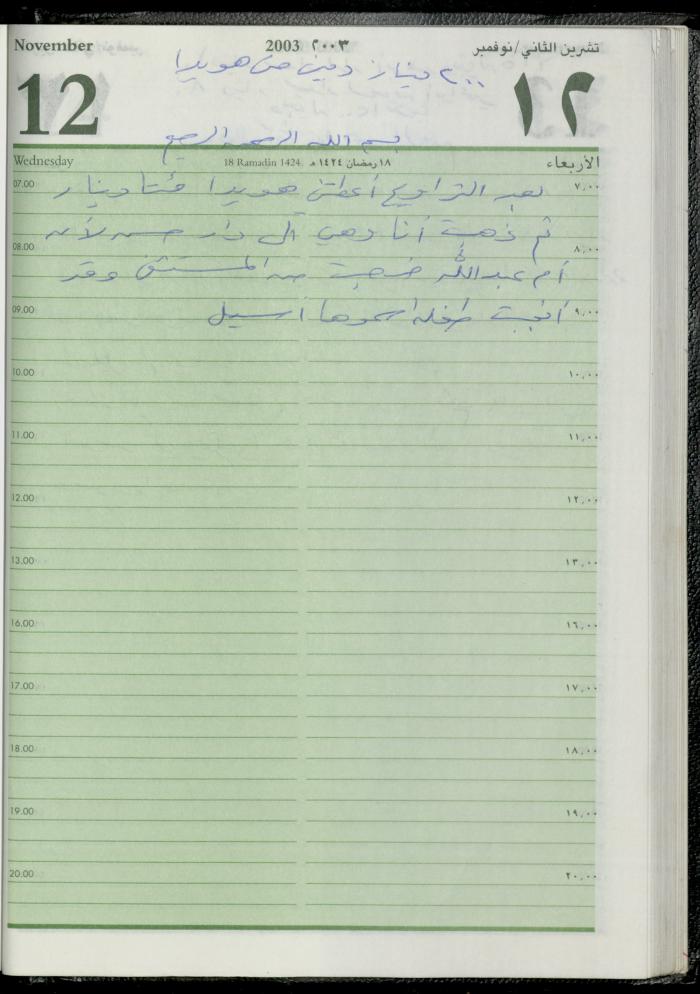 November 2003 ٢٠٠٣ تشرين الثاني/نوفمبر
٢٠٠ دينار دين من هويدا
12 ١٢
بسم الله الرحمن الرحيم
Wednesday 18 Ramadin 1424. ١٨ رمضان ١٤٢٤ هـ الأربعاء
07.00 ٧,٠٠
بعد التراويح أعطتني هويدا مئتا دينار
ثم ذهبت أنا وهي الى دار حسن لأن
08.00 ٨,٠٠
أم عبدالله خرجت من المستشفى وقد
09.00 ٩,٠٠
أنجبت طفلة اسموها أسيل
10.00 ١٠,٠٠
11.00 ١١,٠٠
12.00 ١٢,٠٠
13.00 ١٣,٠٠
16.00 ١٦,٠٠
17.00 ١٧,٠٠
18.00 ١٨,٠٠
19.00 ١٩,٠٠
20.00 ٢٠,٠٠